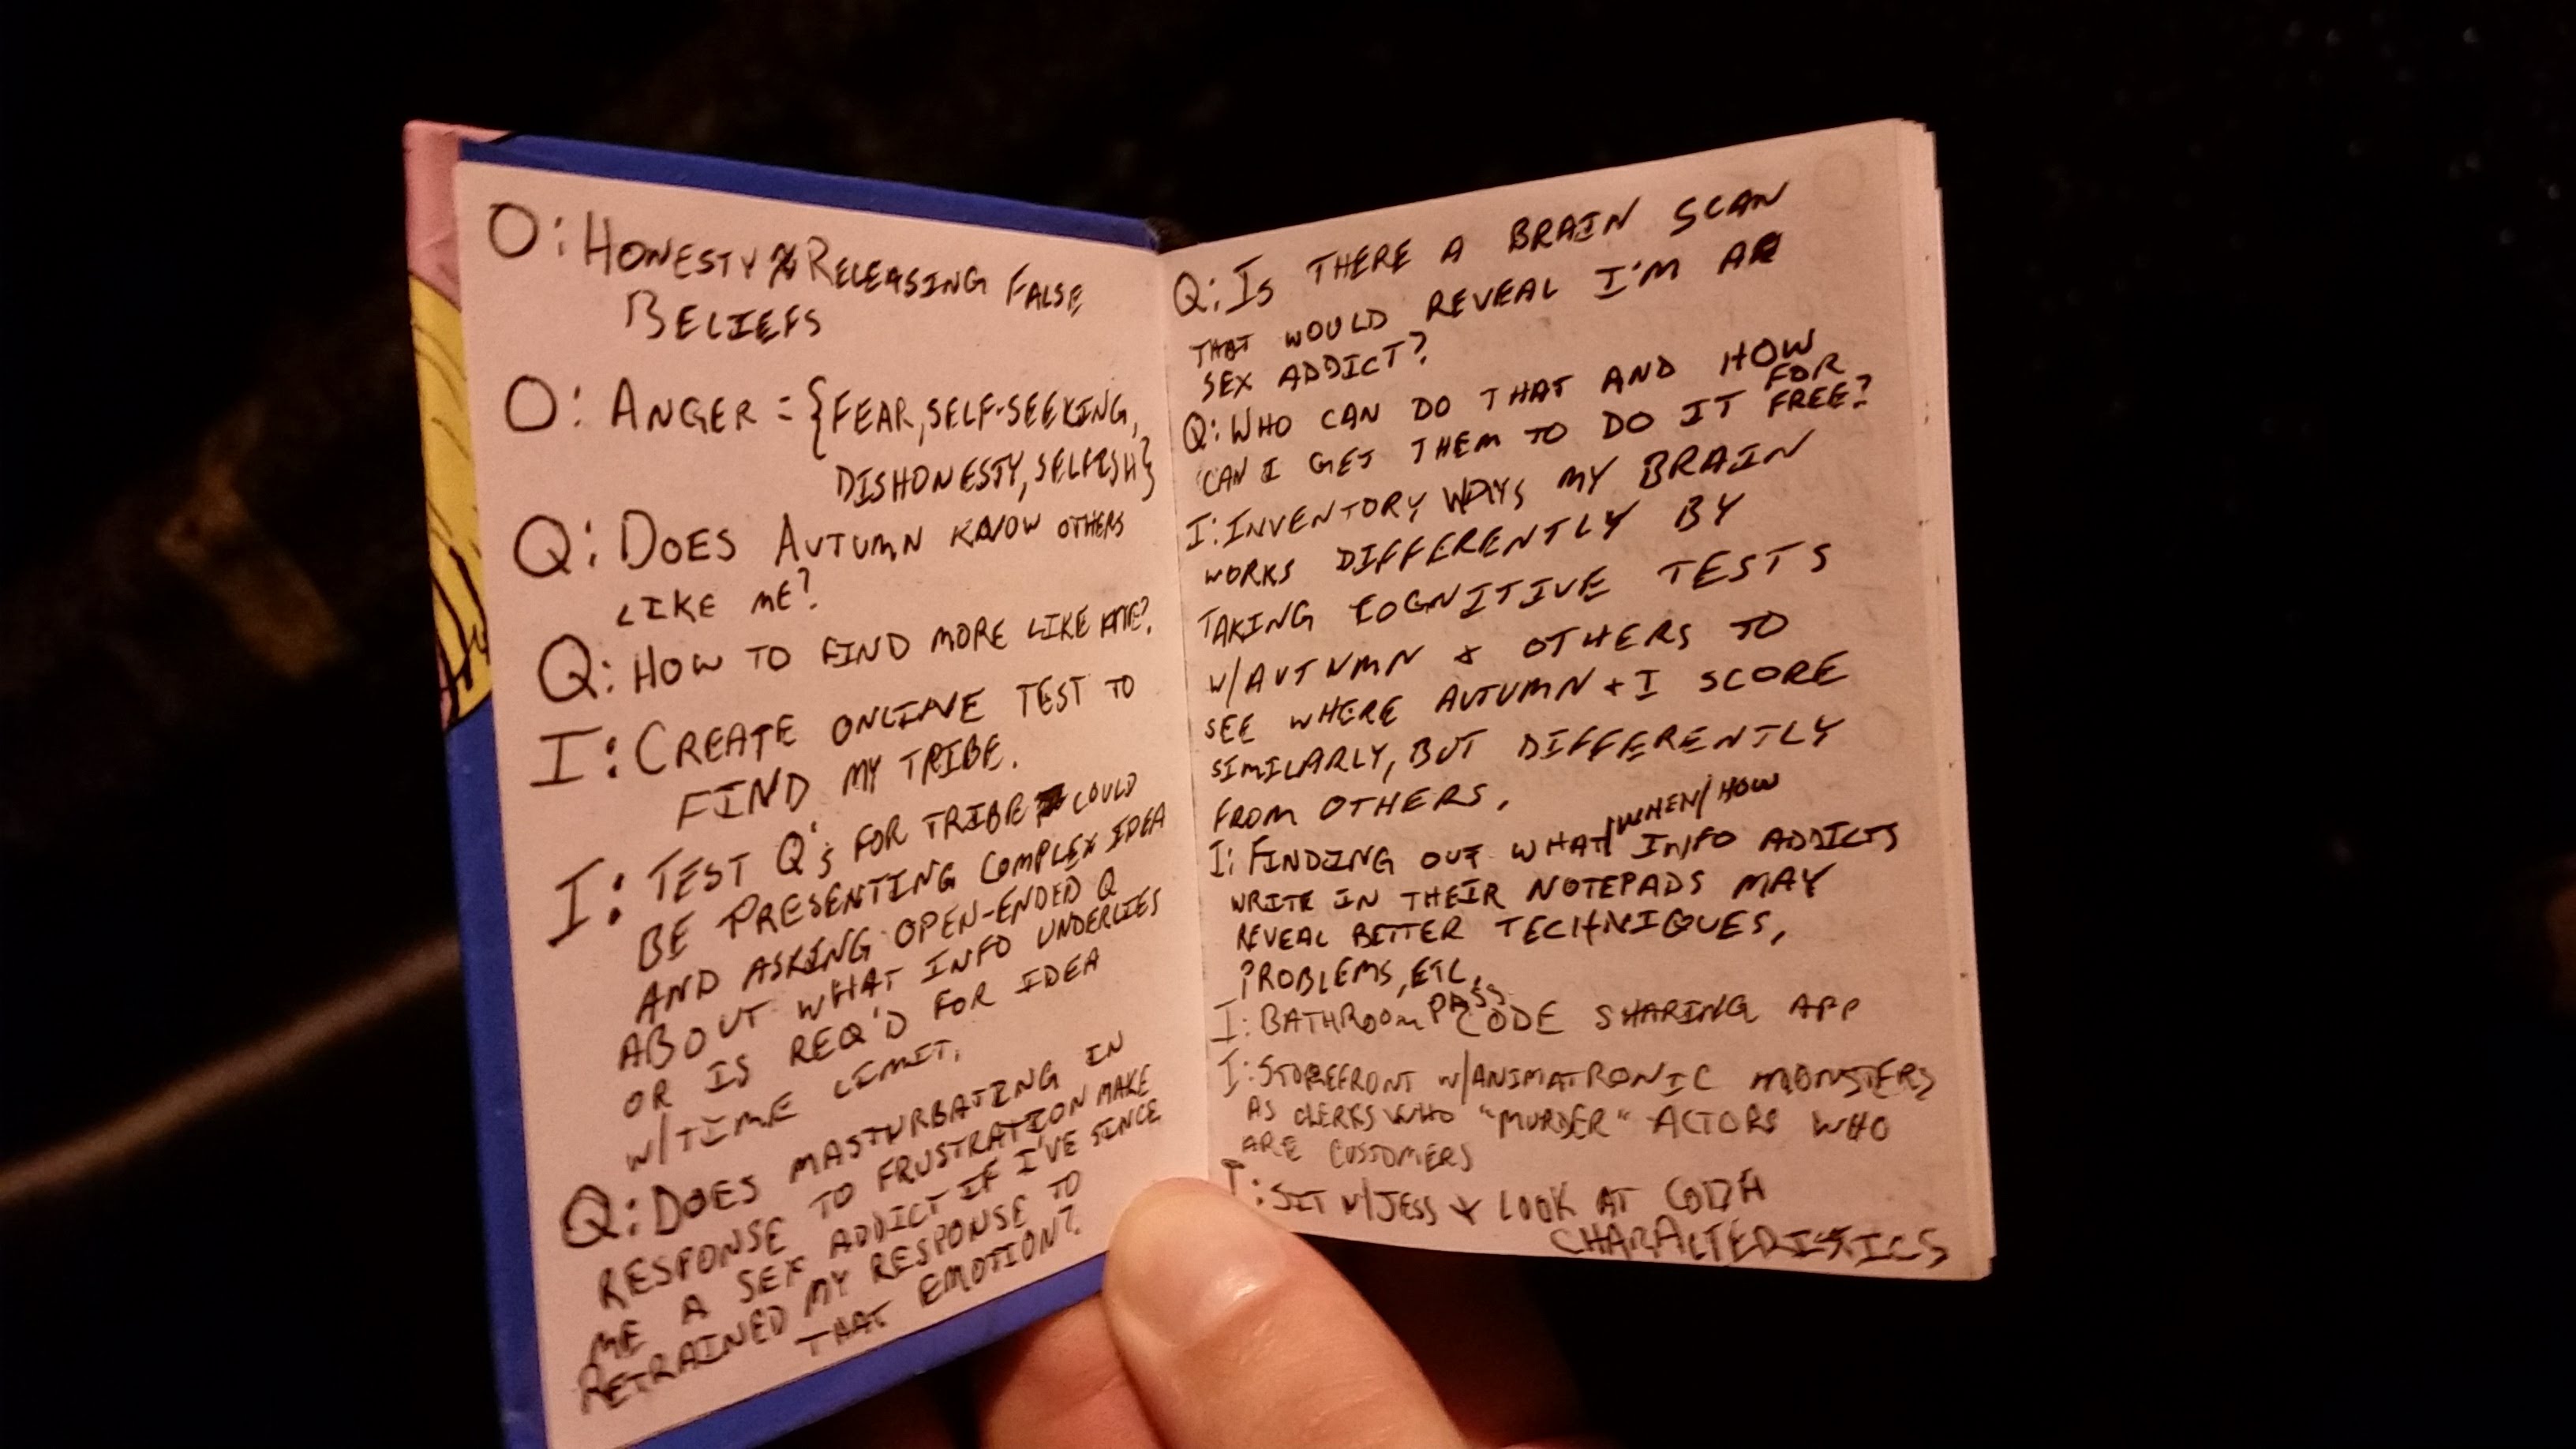 O: HONESTY ≈ RELEASING FALSE
BELIEFS
O: ANGER = {FEAR, SELF-SEEKING,
DISHONESTY, SELFISH}
Q: DOES AUTUMN KNOW OTHERS
LIKE ME?
Q: HOW TO FIND MORE LIKE ME?
I: CREATE ONLINE TEST TO
FIND MY TRIBE.
I: TEST Q'S FOR TRIBE COULD
BE PRESENTING COMPLEX IDEA
AND ASKING OPEN-ENDED Q
ABOUT WHAT INFO UNDERLIES
OR IS REQ'D FOR IDEA
W/TIME LIMIT.
Q: DOES MASTURBATING IN
RESPONSE TO FRUSTRATION MAKE
ME A SEX ADDICT IF I'VE SINCE
RETRAINED MY RESPONSE TO
THAT EMOTION?
Q: IS THERE A BRAIN SCAN
THAT WOULD REVEAL I'M A
SEX ADDICT?
Q: WHO CAN DO THAT AND HOW
CAN I GET THEM TO DO IT FOR FREE?
I: INVENTORY WAYS MY BRAIN
WORKS DIFFERENTLY BY
TAKING COGNITIVE TESTS
W/AUTUMN + OTHERS TO
SEE WHERE AUTUMN + I SCORE
SIMILARLY, BUT DIFFERENTLY
FROM OTHERS.
I: FINDING OUT WHAT/WHEN/HOW INFO ADDICTS
WRITE IN THEIR NOTEPADS MAY
REVEAL BETTER TECHNIQUES,
PROBLEMS, ETC.
I: BATHROOM PASSCODE SHARING APP
I: STOREFRONT W/ANIMATRONIC MONSTERS
AS CLERKS WHO "MURDER" ACTORS WHO
ARE CUSTOMERS
I: SIT W/JESS & LOOK AT CODA
CHARACTERISTICS